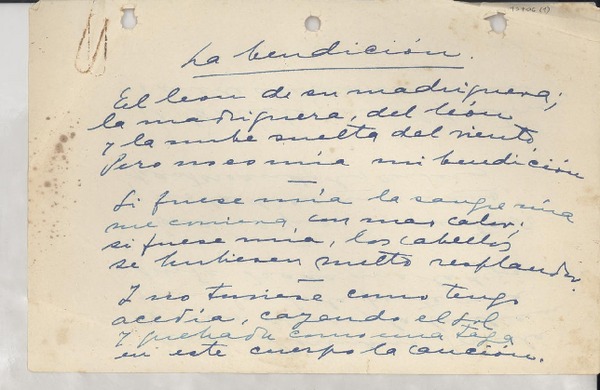 La bendición.
El leon de su madriguera;
la madriguera, del león
y la nube suelta del viento
Pero no es mía mi bendición
Si fuese mía la sangre mía
me corriera con mas calor;
si fuese mía, los cabellos
se hubiesen vuelto resplandor.
Y no tuviese como tengo
acedía, cayendo el sol
Y quebrada como una
en este cuerpo la canción.